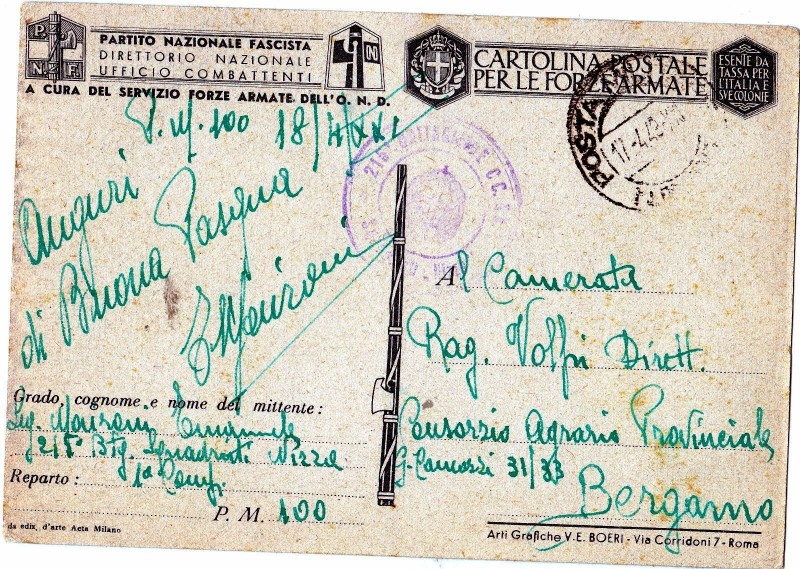 P. N.
N. F.
PARTITO NAZIONALE FASCISTA
DIRETTORIO NAZIONALE
UFFICIO COMBATTENTI
A CURA DEL SERVIZIO FORZE ARMATE DELL'O. N. D.
CARTOLINA POSTALE
PER LE FORZE ARMATE
ESENTE DA
TASSA PER
L'ITALIA E
LE COLONIE
POSTA
17.4.43
P. M. 100 18/4/XXI
216° BATTAGLIONE CC.
Auguri
di Buona Pasqua
EManroni
Al Camerata
Rag. Volpi Dirett.
Consorzio Agrario Provinciale
G. Camozzi 31/33
Bergamo
Grado, cognome e nome del mittente:
Emanuele
215° Btg. Squadristi Nizza
Reparto: 1a Comp.
P. M. 100
da ediz. d'arte Acta Milano
Arti Grafiche V. E. BOERI - Via Corridoni 7 - Roma